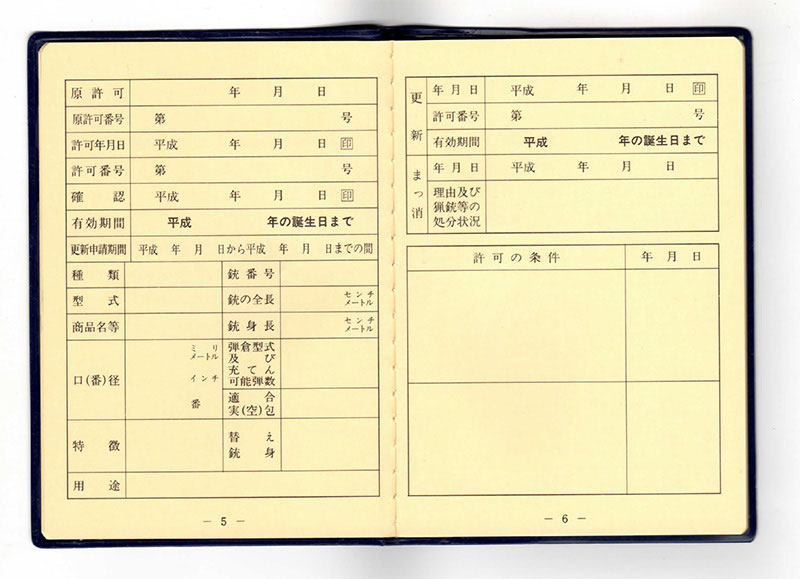 原許可 年 月 日
原許可番号 第 号
許可年月日 平成 年 月 日 印
許可番号 第 号
確認 平成 年 月 日 印
有効期間 平成 年の誕生日まで
更新申請期間 平成 年 月 日から平成 年 月 日までの間
種類 銃番号
型式 銃の全長 センチメートル
商品名等 銃身長 センチメートル
口(番)径 ミリメートル インチ 番
弾倉型式
及び
充てん
可能弾数
適合
実(空)包
特徴
替え
銃身
用途
— 5 —
更新
年月日 平成 年 月 日 印
許可番号 第 号
有効期間 平成 年の誕生日まで
まつ消
年月日 平成 年 月 日
理由及び
猟銃等の
処分状況
許可の条件 年月日
— 6 —